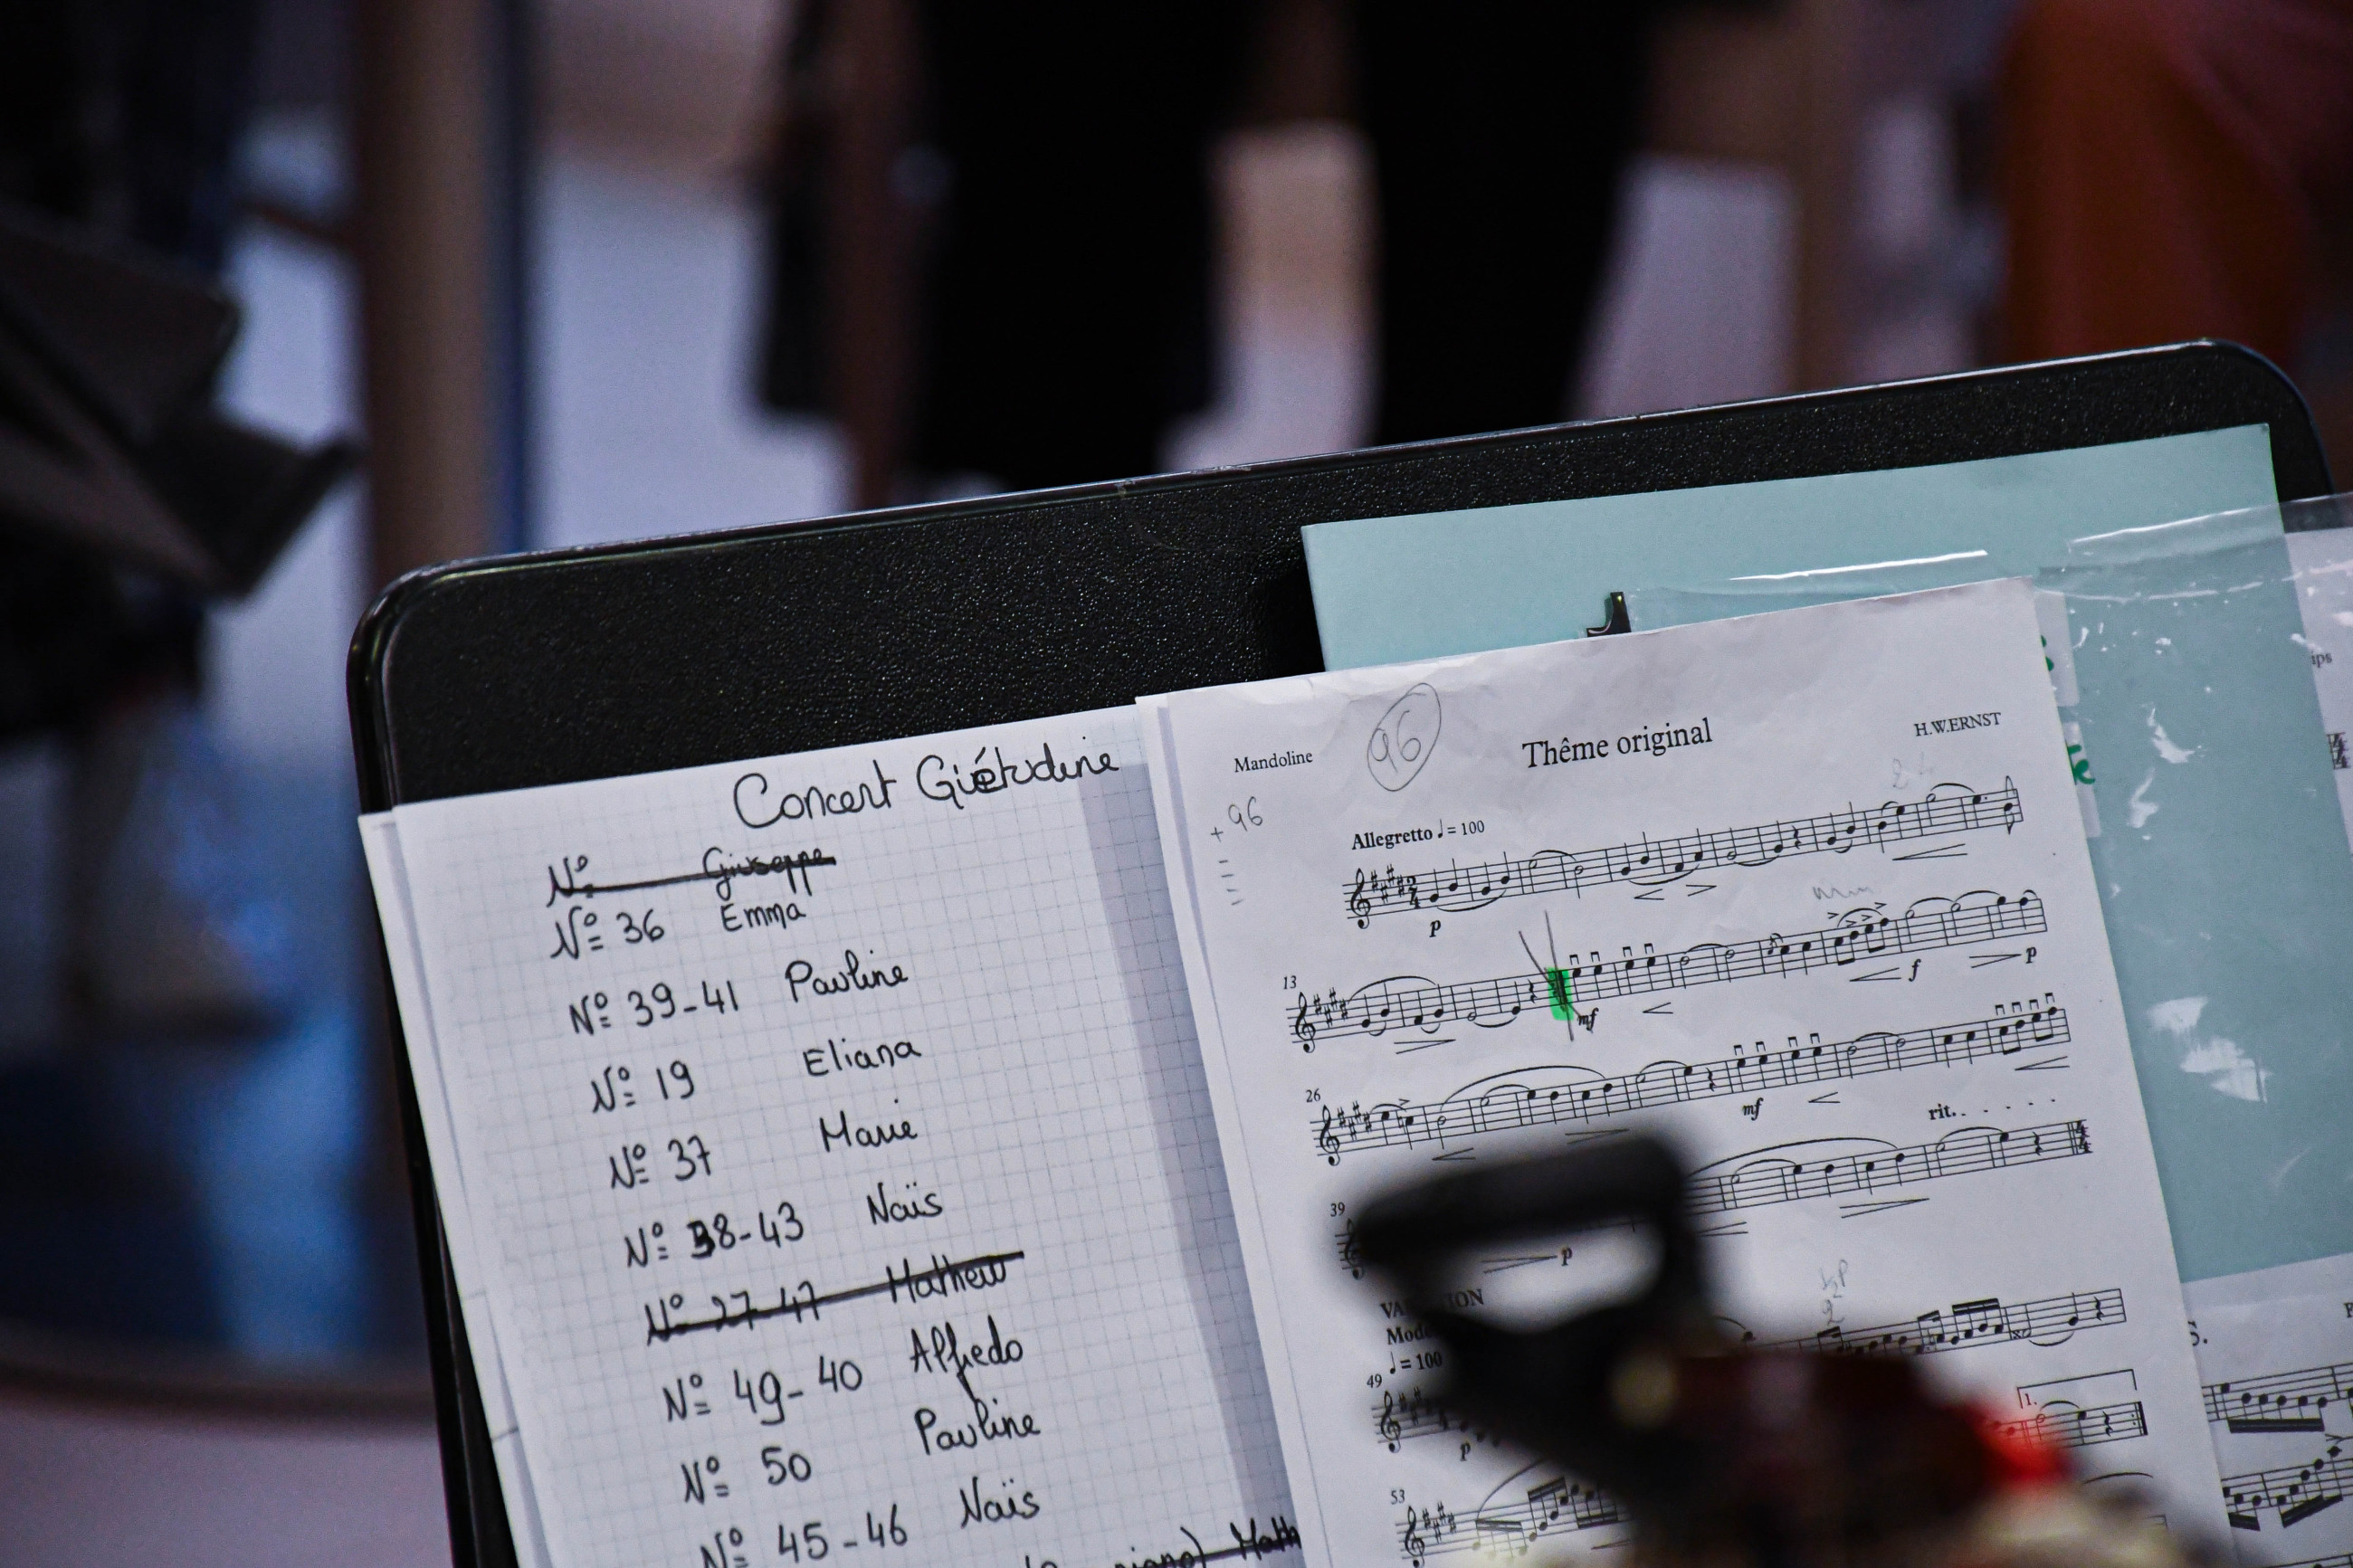 Concert Giétudine
Nº Giuseppe
Nº 36 Emma
Nº 39-41 Pauline
Nº 19 Eliana
Nº 37 Marie
Nº 38-43 Naïs
Nº 27-47 Mathew
Nº 49-40 Alfredo
Nº 50 Pauline
Nº 45-46 Naïs
piano) Math
Mandoline
96
Thême original
H.W.ERNST
+ 96
Allegretto ♩= 100
p
13
mf
f
p
26
mf
rit.. . . . .
39
p
♩= 100
49
p
1.
53
ips
S.